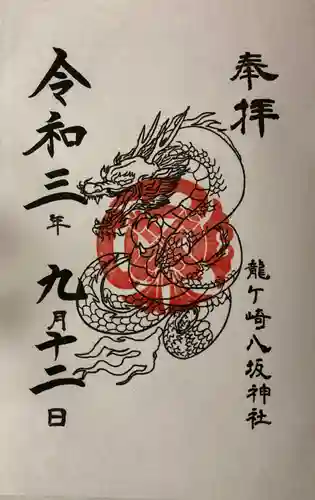 奉拝
龍ケ崎八坂神社
令和三年九月十二日